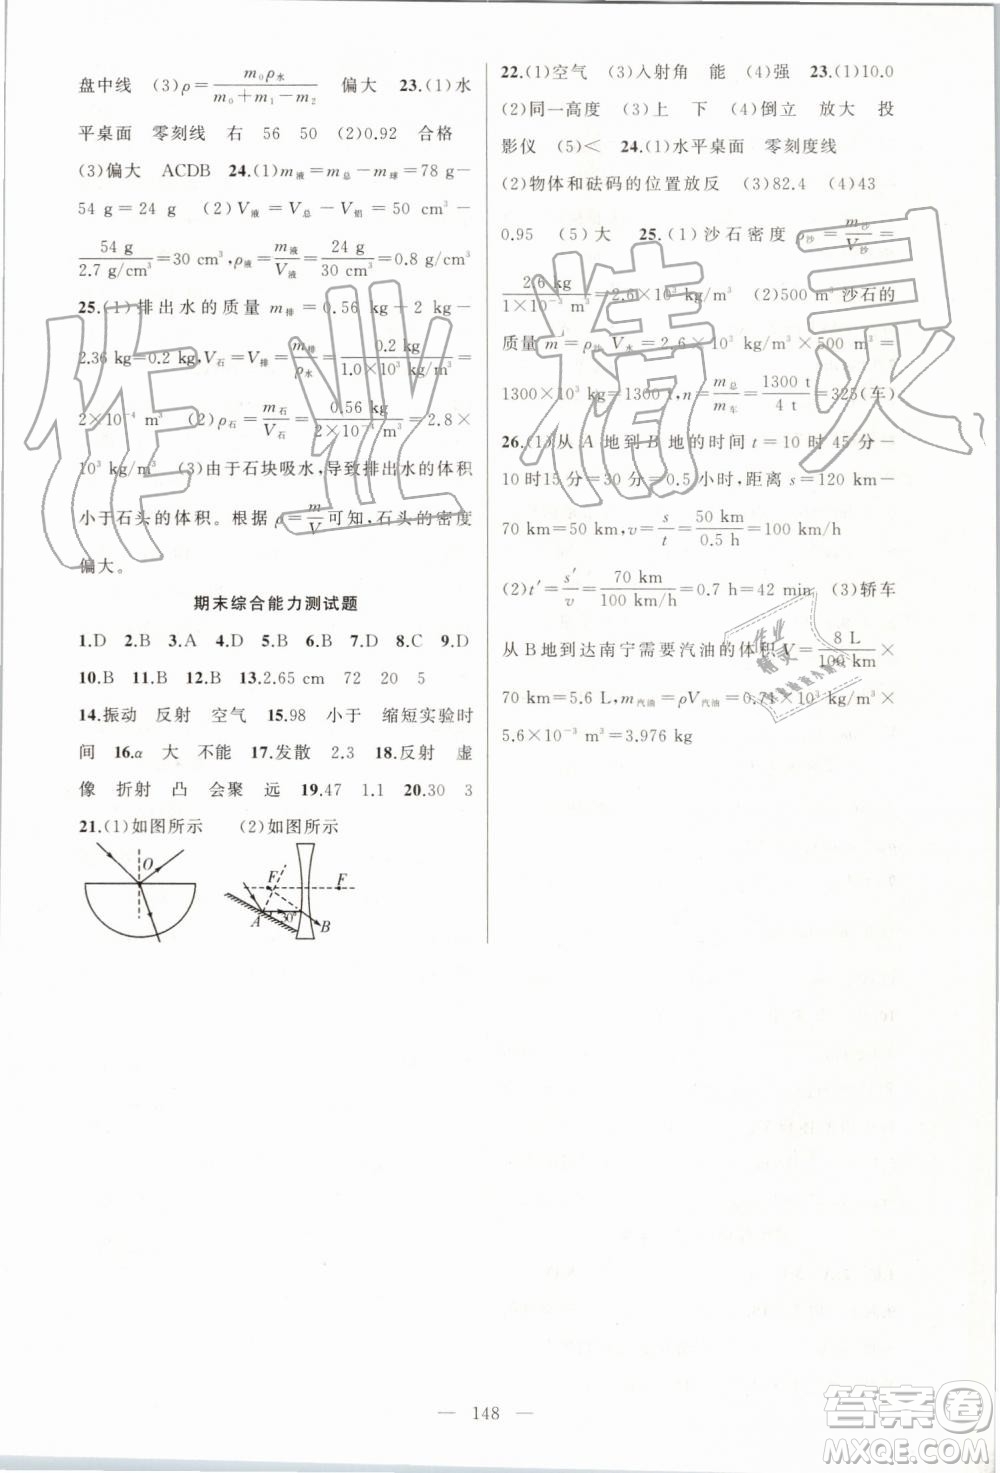 盘中线 (3)ρ=m₀ρ水/(m₀+m₁−m₂) 偏大 23.(1)水
平桌面 零刻线 右 56 50 (2)0.92 合格
(3)偏大 ACDB 24.(1)m液=m总−m球=78 g−
54 g=24 g (2)V液=V总−V铝=50 cm³−
54 g/2.7 g/cm³=30 cm³,ρ液=m液/V液=24 g/30 cm³=0.8 g/cm³
25.(1)排出水的质量 m排=0.56 kg+2 kg−
2.36 kg=0.2 kg,V石=V排=m排/ρ水=0.2 kg/1.0×10³ kg/m³=
2×10⁻⁴ m³ (2)ρ石=m石/V石=0.56 kg/2×10⁻⁴ m³=2.8×
10³ kg/m³ (3)由于石块吸水,导致排出水的体积
小于石头的体积。根据 ρ=m/V 可知,石头的密度
偏大。
期末综合能力测试题
1.D 2.B 3.A 4.D 5.B 6.B 7.D 8.C 9.D
10.B 11.B 12.B 13.2.65 cm 72 20 5
14.振动 反射 空气 15.98 小于 缩短实验时
间 16.α 大 不能 17.发散 2.3 18.反射 虚
像 折射 凸 会聚 远 19.47 1.1 20.30 3
21.(1)如图所示 (2)如图所示
O
F F
A 30° B
22.(1)空气 (3)入射角 能 (4)强 23.(1)10.0
(2)同一高度 (3)上 下 (4)倒立 放大 投
影仪 (5)< 24.(1)水平桌面 零刻度线
(2)物体和砝码的位置放反 (3)82.4 (4)43
0.95 (5)大 25.(1)沙石密度 ρ沙=m沙/V沙=
2.6 kg/1×10⁻³ m³=2.6×10³ kg/m³ (2)500 m³沙石的
质量 m=ρ沙 V水=2.6×10³ kg/m³×500 m³=
1300×10³ kg=1300 t,n=m总/m车=1300 t/4 t=325(车)
26.(1)从 A 地到 B 地的时间 t=10 时 45 分−
10 时15 分=30 分=0.5 小时,距离 s=120 km−
70 km=50 km,v=s/t=50 km/0.5 h=100 km/h
(2)t′=s′/v=70 km/100 km/h=0.7 h=42 min (3)轿车
从 B地到达南宁需要汽油的体积 V=8 L/100 km×
70 km=5.6 L,m汽油=ρV汽油=0.71×10³ kg/m³×
5.6×10⁻³ m³=3.976 kg
作业精灵
作业
精灵
— 148 —
答案圈
MXQE.COM